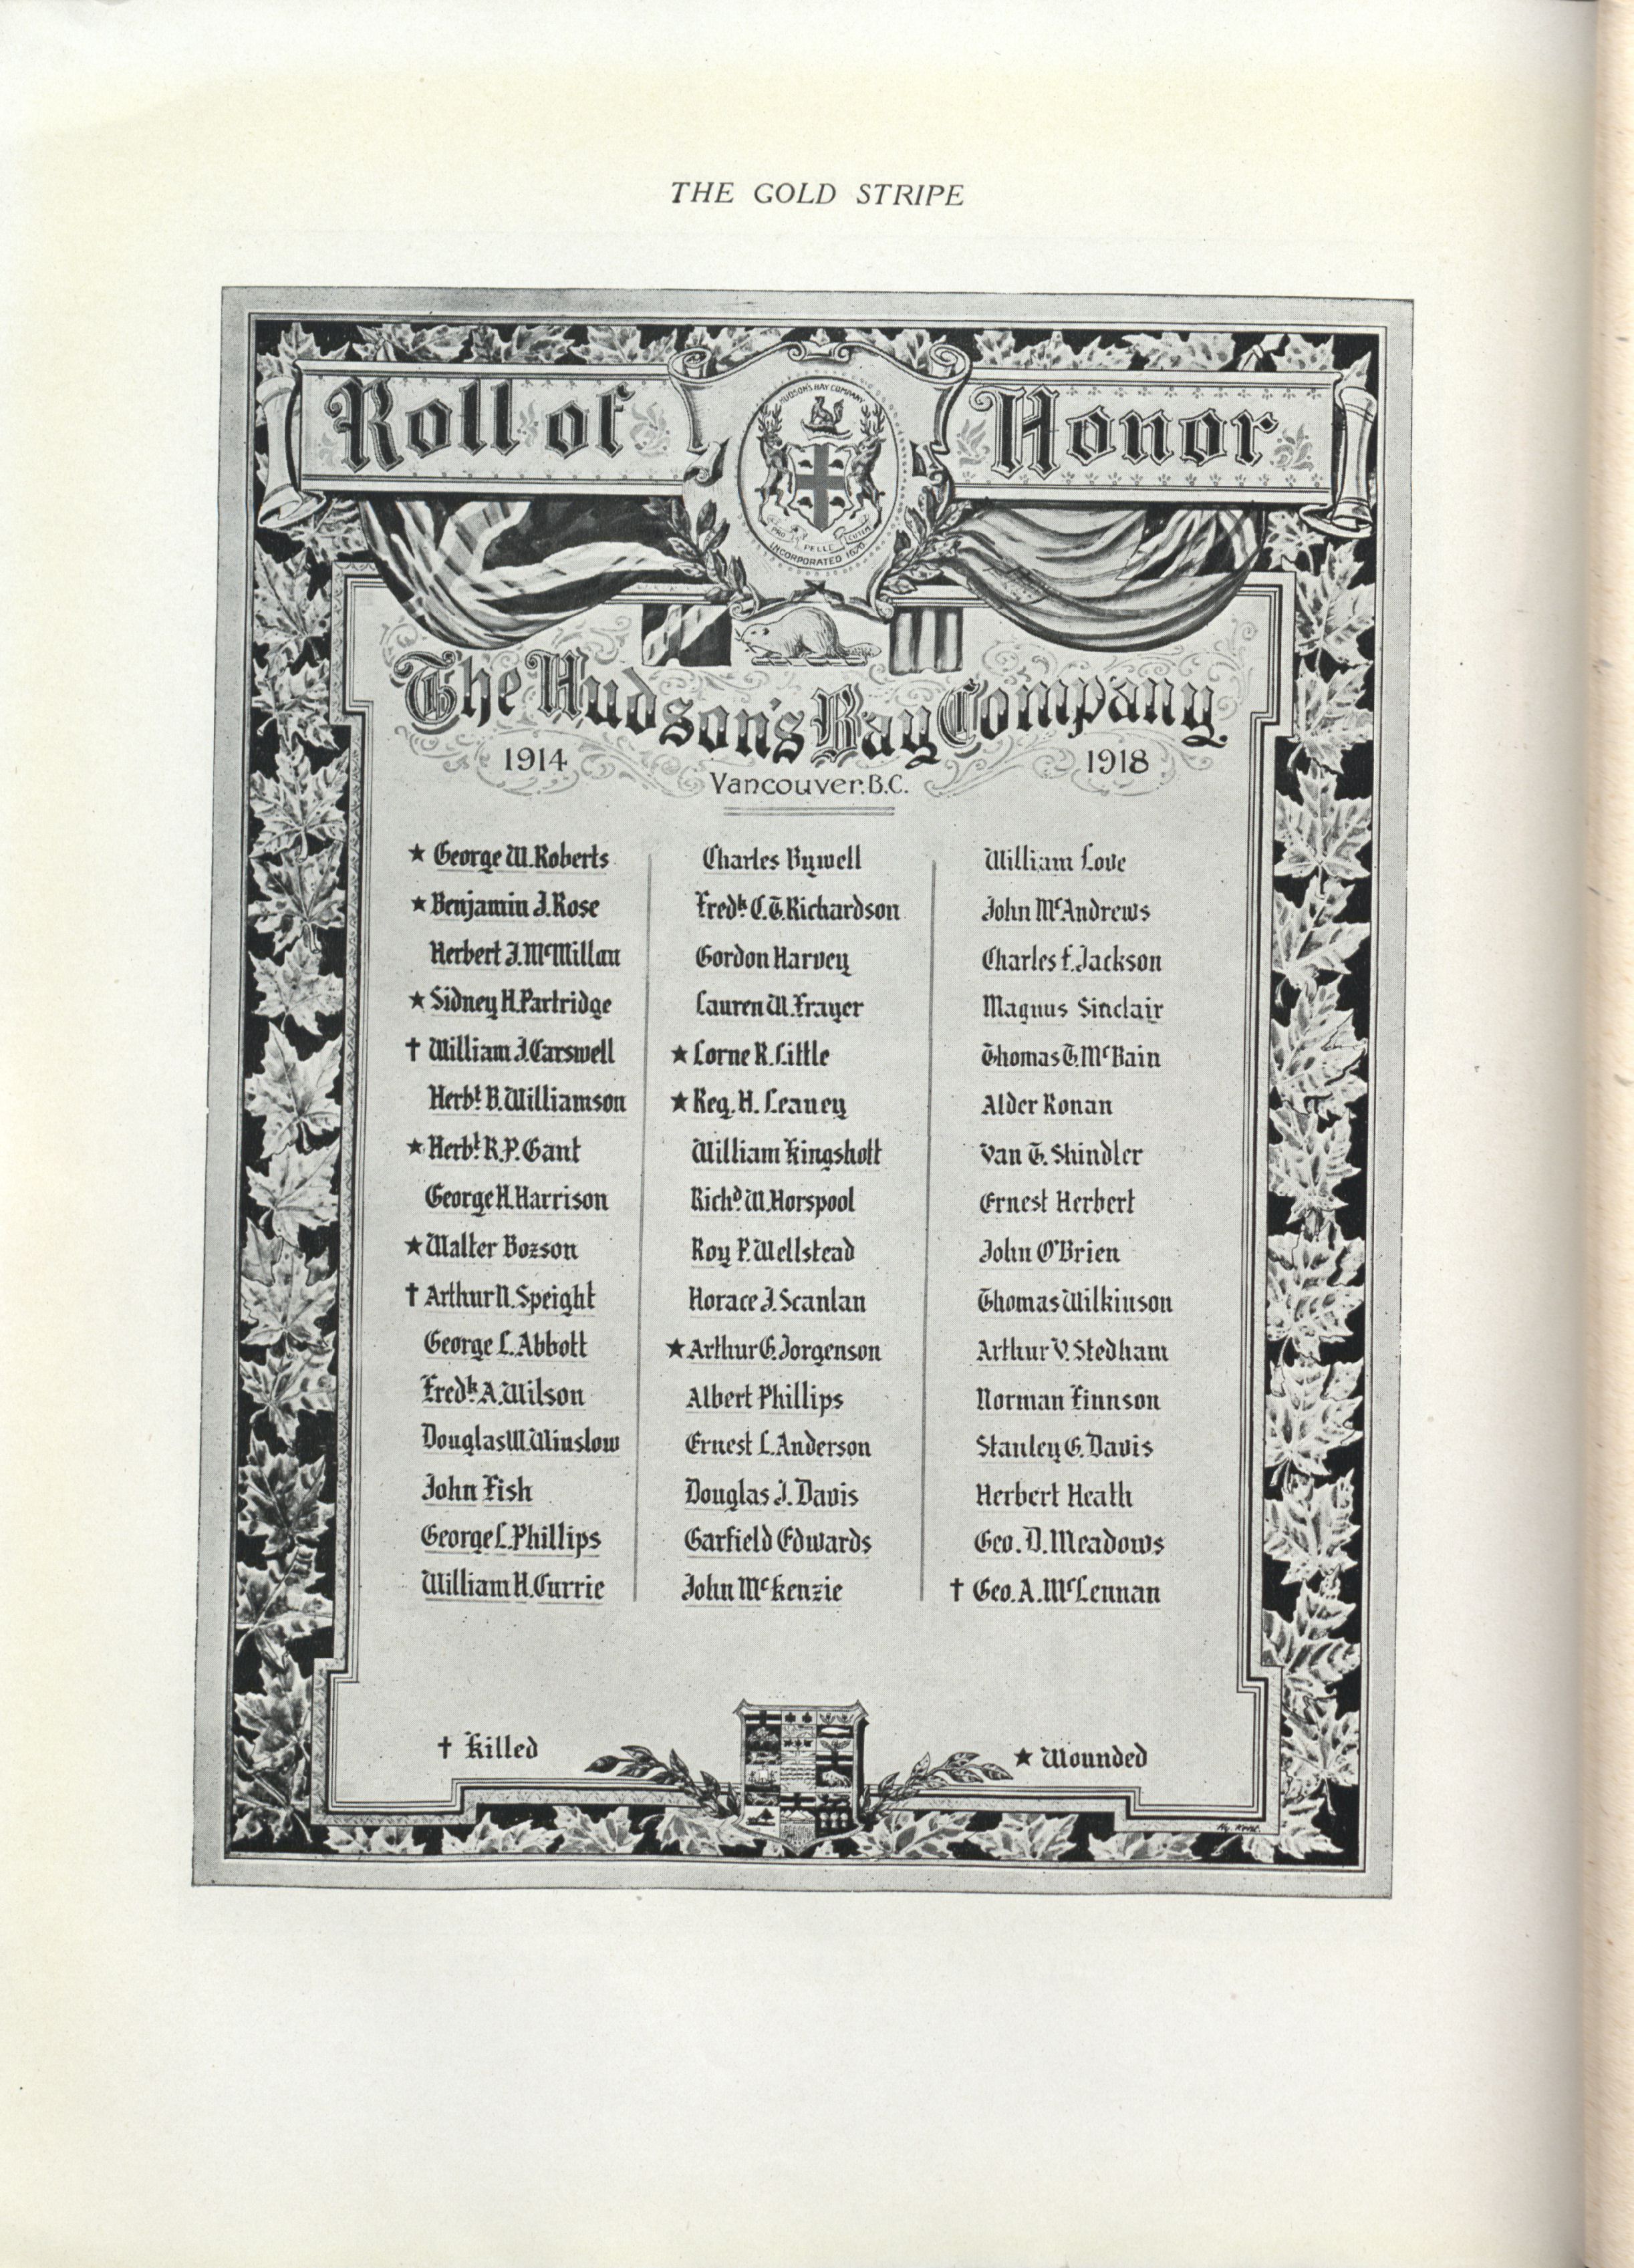 THE GOLD STRIPE
Roll of Honor
HUDSON'S BAY COMPANY
PRO PELLE CUTEM
INCORPORATED 1670
The Hudson's Bay Company
1914 1918
Vancouver. B.C.
★ George W. Roberts
★ Benjamin J. Rose
Herbert J. McMillan
★ Sidney H. Partridge
† William J. Carswell
Herbt. B. Williamson
★ Herbt. R. P. Gant
George H. Harrison
★ Walter Bozson
† Arthur N. Speight
George L. Abbott
Fredk. A. Wilson
Douglas W. Winslow
John Fish
George L. Phillips
William H. Currie
Charles Bywell
Fredk. C. T. Richardson
Gordon Harvey
Lauren W. Frayer
★ Lorne R. Little
★ Reg. H. Leaney
William Kingshott
Richd. W. Horspool
Roy P. Wellstead
Horace J. Scanlan
★ Arthur G. Jorgenson
Albert Phillips
Ernest L. Anderson
Douglas J. Davis
Garfield Edwards
John McKenzie
William Love
John McAndrews
Charles F. Jackson
Magnus Sinclair
Thomas T. McBain
Alder Ronan
Van T. Shindler
Ernest Herbert
John O'Brien
Thomas Wilkinson
Arthur V. Stedham
Norman Finnson
Stanley G. Davis
Herbert Heath
Geo. D. Meadows
† Geo. A. McLennan
† Killed
★ Wounded